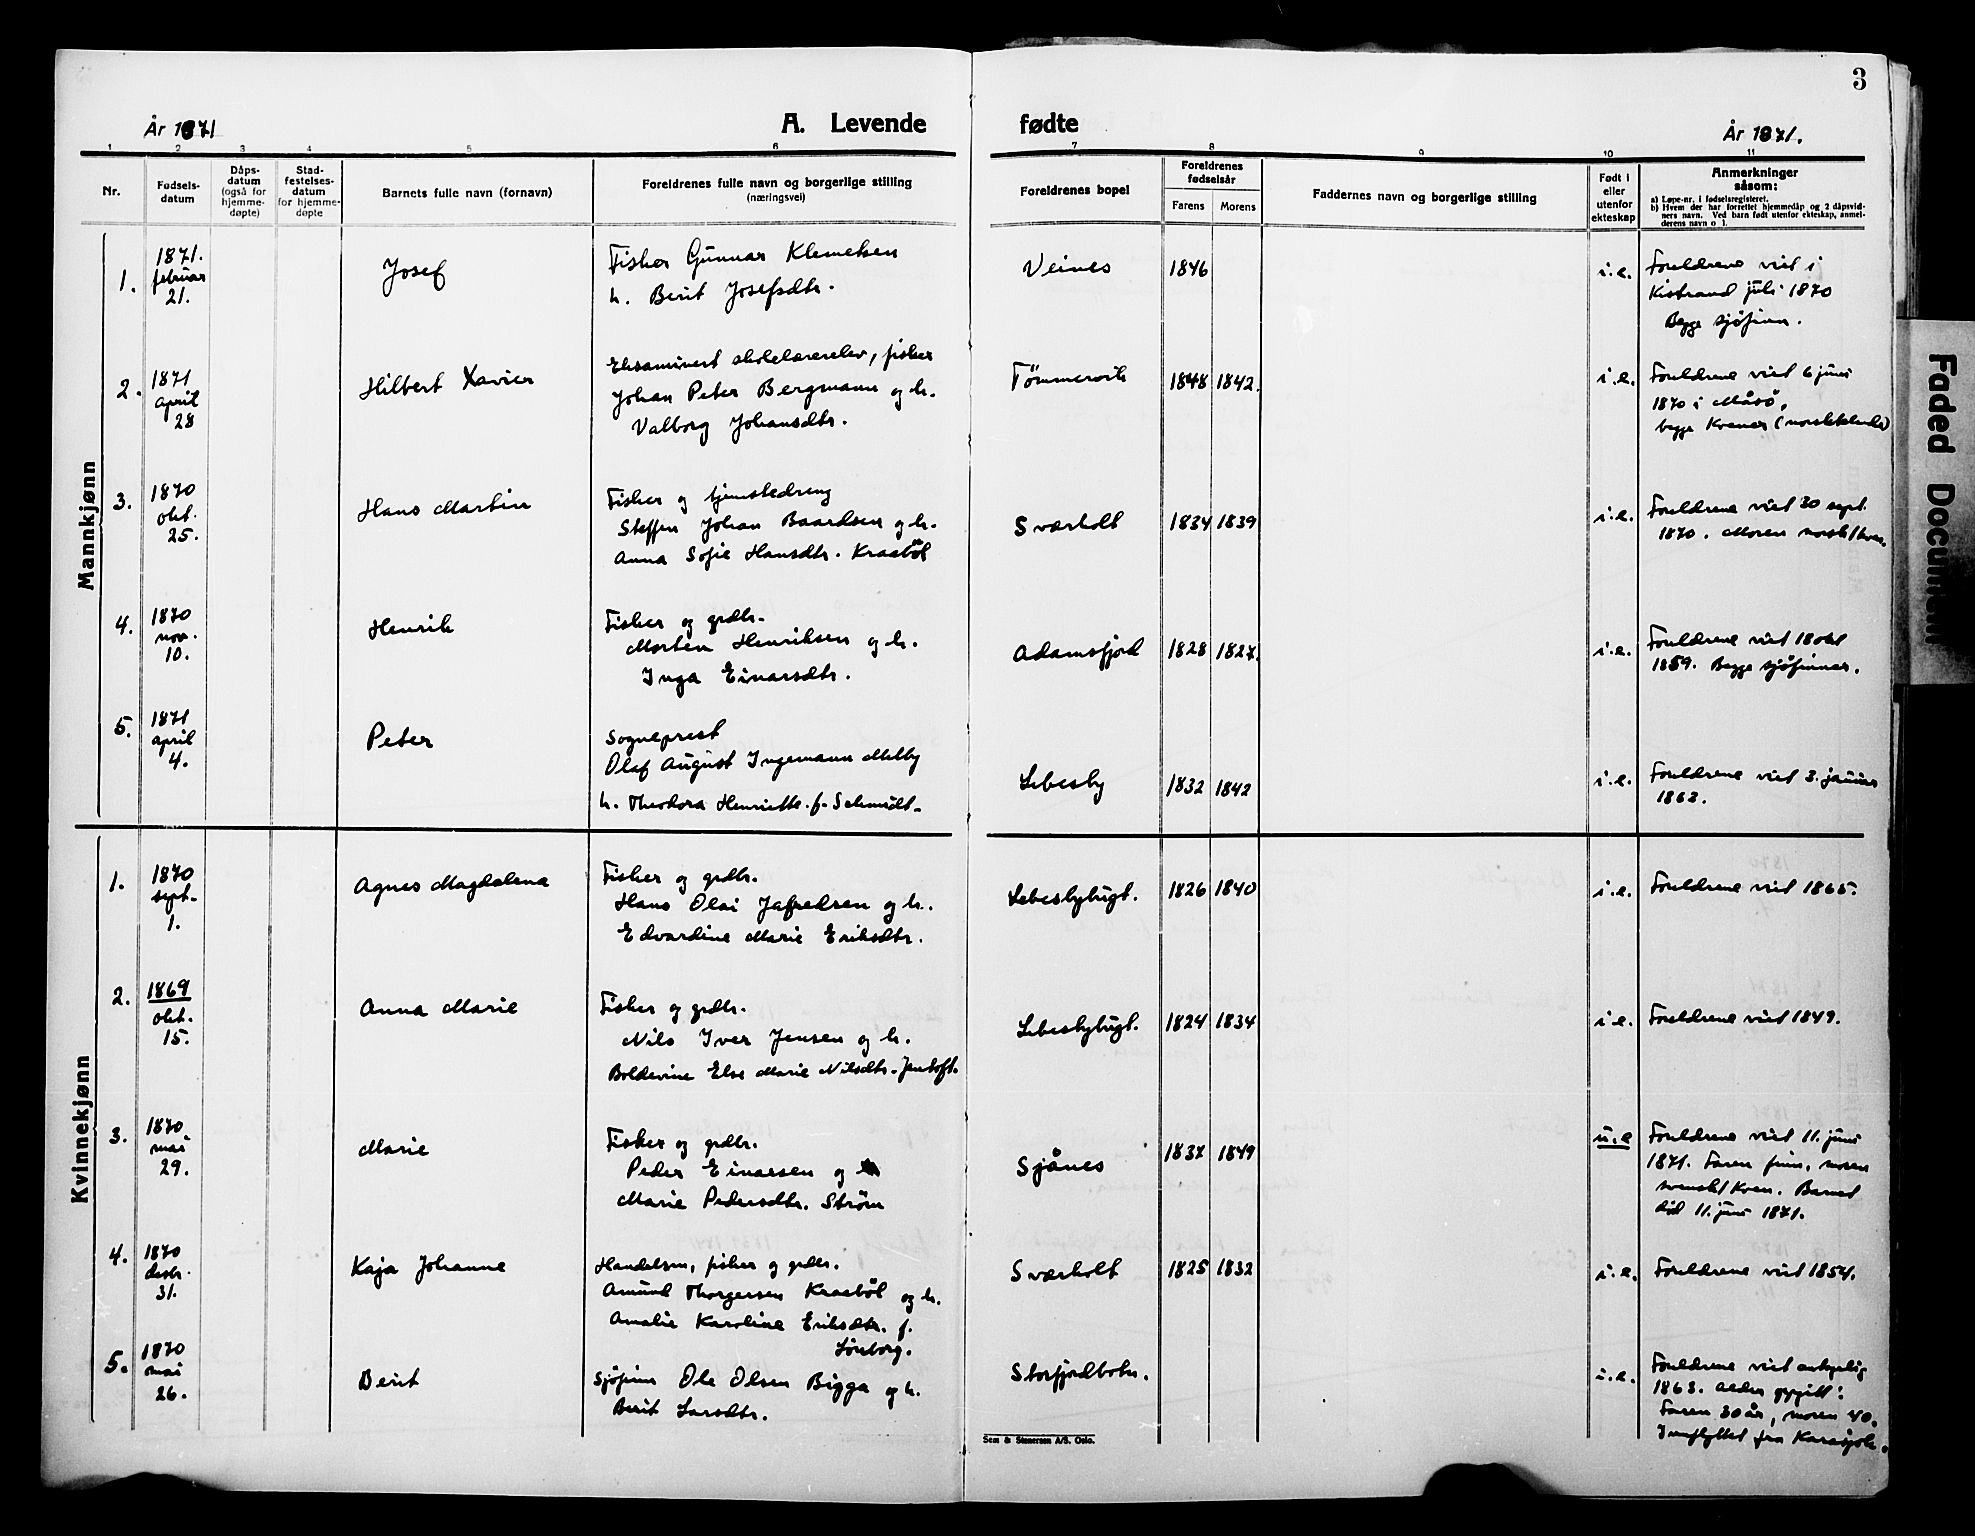 3
År 1871
A. Levende
fødte
År 1871.
1 2 3 4 5 6 7 8 9 10 11
Nr.
Fødsels-
datum
Dåps-
datum
(også for
hjemme-
døpte)
Stad-
festelses-
datum
for hjemme-
døpte
Barnets fulle navn (fornavn)
Foreldrenes fulle navn og borgerlige stilling
(næringsvei)
Foreldrenes bopel
Foreldrenes
fødselsår
Farens Morens
Faddernes navn og borgerlige stilling
Født i
eller
utenfor
ekteskap
Anmerkninger
såsom:
a) Løpe-nr. i fødselsregisteret.
b) Hvem der har forrettet hjemmedåp og 2 dåpsvid-
ners navn. Ved barn født utenfor ekteskap, anmel-
derens navn o l.
Mannkjønn
1.
1871.
februar
21.
Josef
Fisker Gunnar Klemetsen
h. Berit Josefsdtr.
Veines
1846
i.e.
Foreldrene viet i
Kistrand juli 1870
Begge sjøfinn.
2.
1871
april
28
Hilbert Xavier
Eksaminert skolelærerelev, fisker
Johan Peter Bergmann og h.
Valborg Johansdtr.
Tømmervik
1848 1842.
i.e.
Foreldrene viet 6 juni
1870 i Måsø,
begge Kvener (norsktalende)
3.
1870
okt.
25.
Hans Martin
Fisker og tjenestedreng
Steffen Johan Baardsen og h.
Anna Sofie Hansdtr. Kraabøl
Sværholt
1834 1839
i.e.
Foreldrene viet 30 sept.
1870. Moren norsk/kven.
4.
1870
nov.
10.
Henrik
Fisker og grdbr.
Morten Henriksen og h.
Inga Einarsdtr.
Adamsfjord
1828 1827.
i.e.
Foreldrene viet 18 okt
1859. Begge sjøfinner.
5.
1871
april
4.
Peter
Sogneprest
Olaf August Ingemann Melby
h. Theodora Henriette f. Schmidt.
Lebesby
1832 1842
i.e.
Foreldrene viet 3. januar
1863.
Kvinnekjønn
1.
1870
sept.
1.
Agnes Magdalena
Fisker og grdbr.
Hans Olai Jafredsen og h.
Edvardine Marie Eriksdtr.
Lebesbybugt.
1826 1840
i.e.
Foreldrene viet 1865.
2.
1869
okt.
15.
Anna Marie
Fisker og grdbr.
Nils Iver Jensen og h.
Boldevine Else Marie Nilsdtr. Jentoft.
Lebesbybugt.
1824 1834
i.e.
Foreldrene viet 1849.
3.
1870
mai
29.
Marie
Fisker og grdbr.
Peder Einarsen og
Marie Pedersdtr. Strøm
Sjånes
1837 1849
u.e
Foreldrene viet 11. juni
1871. Faren finn, moren
svensk/Kven. Barnet
død 11. juni 1871.
4.
1870
desbr.
31.
Kaja Johanne
Handelsm, fisker og grdbr.
Amund Thorgersen Kraabøl og h.
Amalie Karoline Eriksdtr. f.
Lønborg.
Sværholt
1825 1832
i.e.
Foreldrene viet 1854.
5.
1870
mai
26.
Berit
Sjøfinn Ole Olsen Bigga og h.
Berit Larsdtr.
Storfjordbotn.
i.e.
Foreldrene viet antagelig
1863. Alder opgitt:
Faren 30 år, moren 40.
Innflyttet fra Karasjok.
Sem & Stenersen A/S. Oslo.
Faded Document